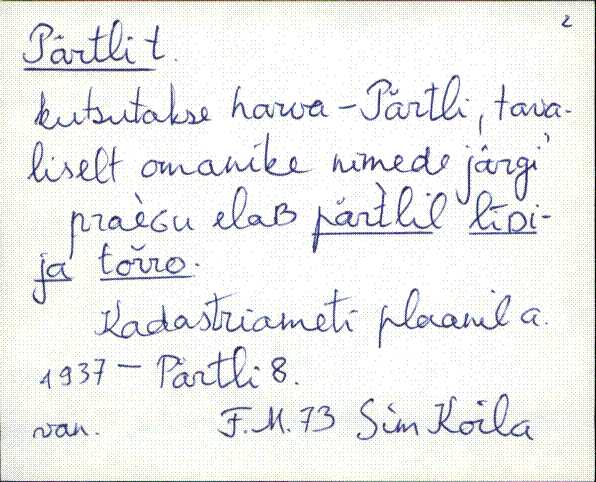 2
Pärtli t.
kutsutakse harva – Pärtli, tava-
liselt omanike nimede järgi
praèGu elaB pär̀tlil līDi-
ja tošro.
Kadastriameti plaanil a.
1937 – Pärtli 8.
van. F.M. 73 Sim Koila